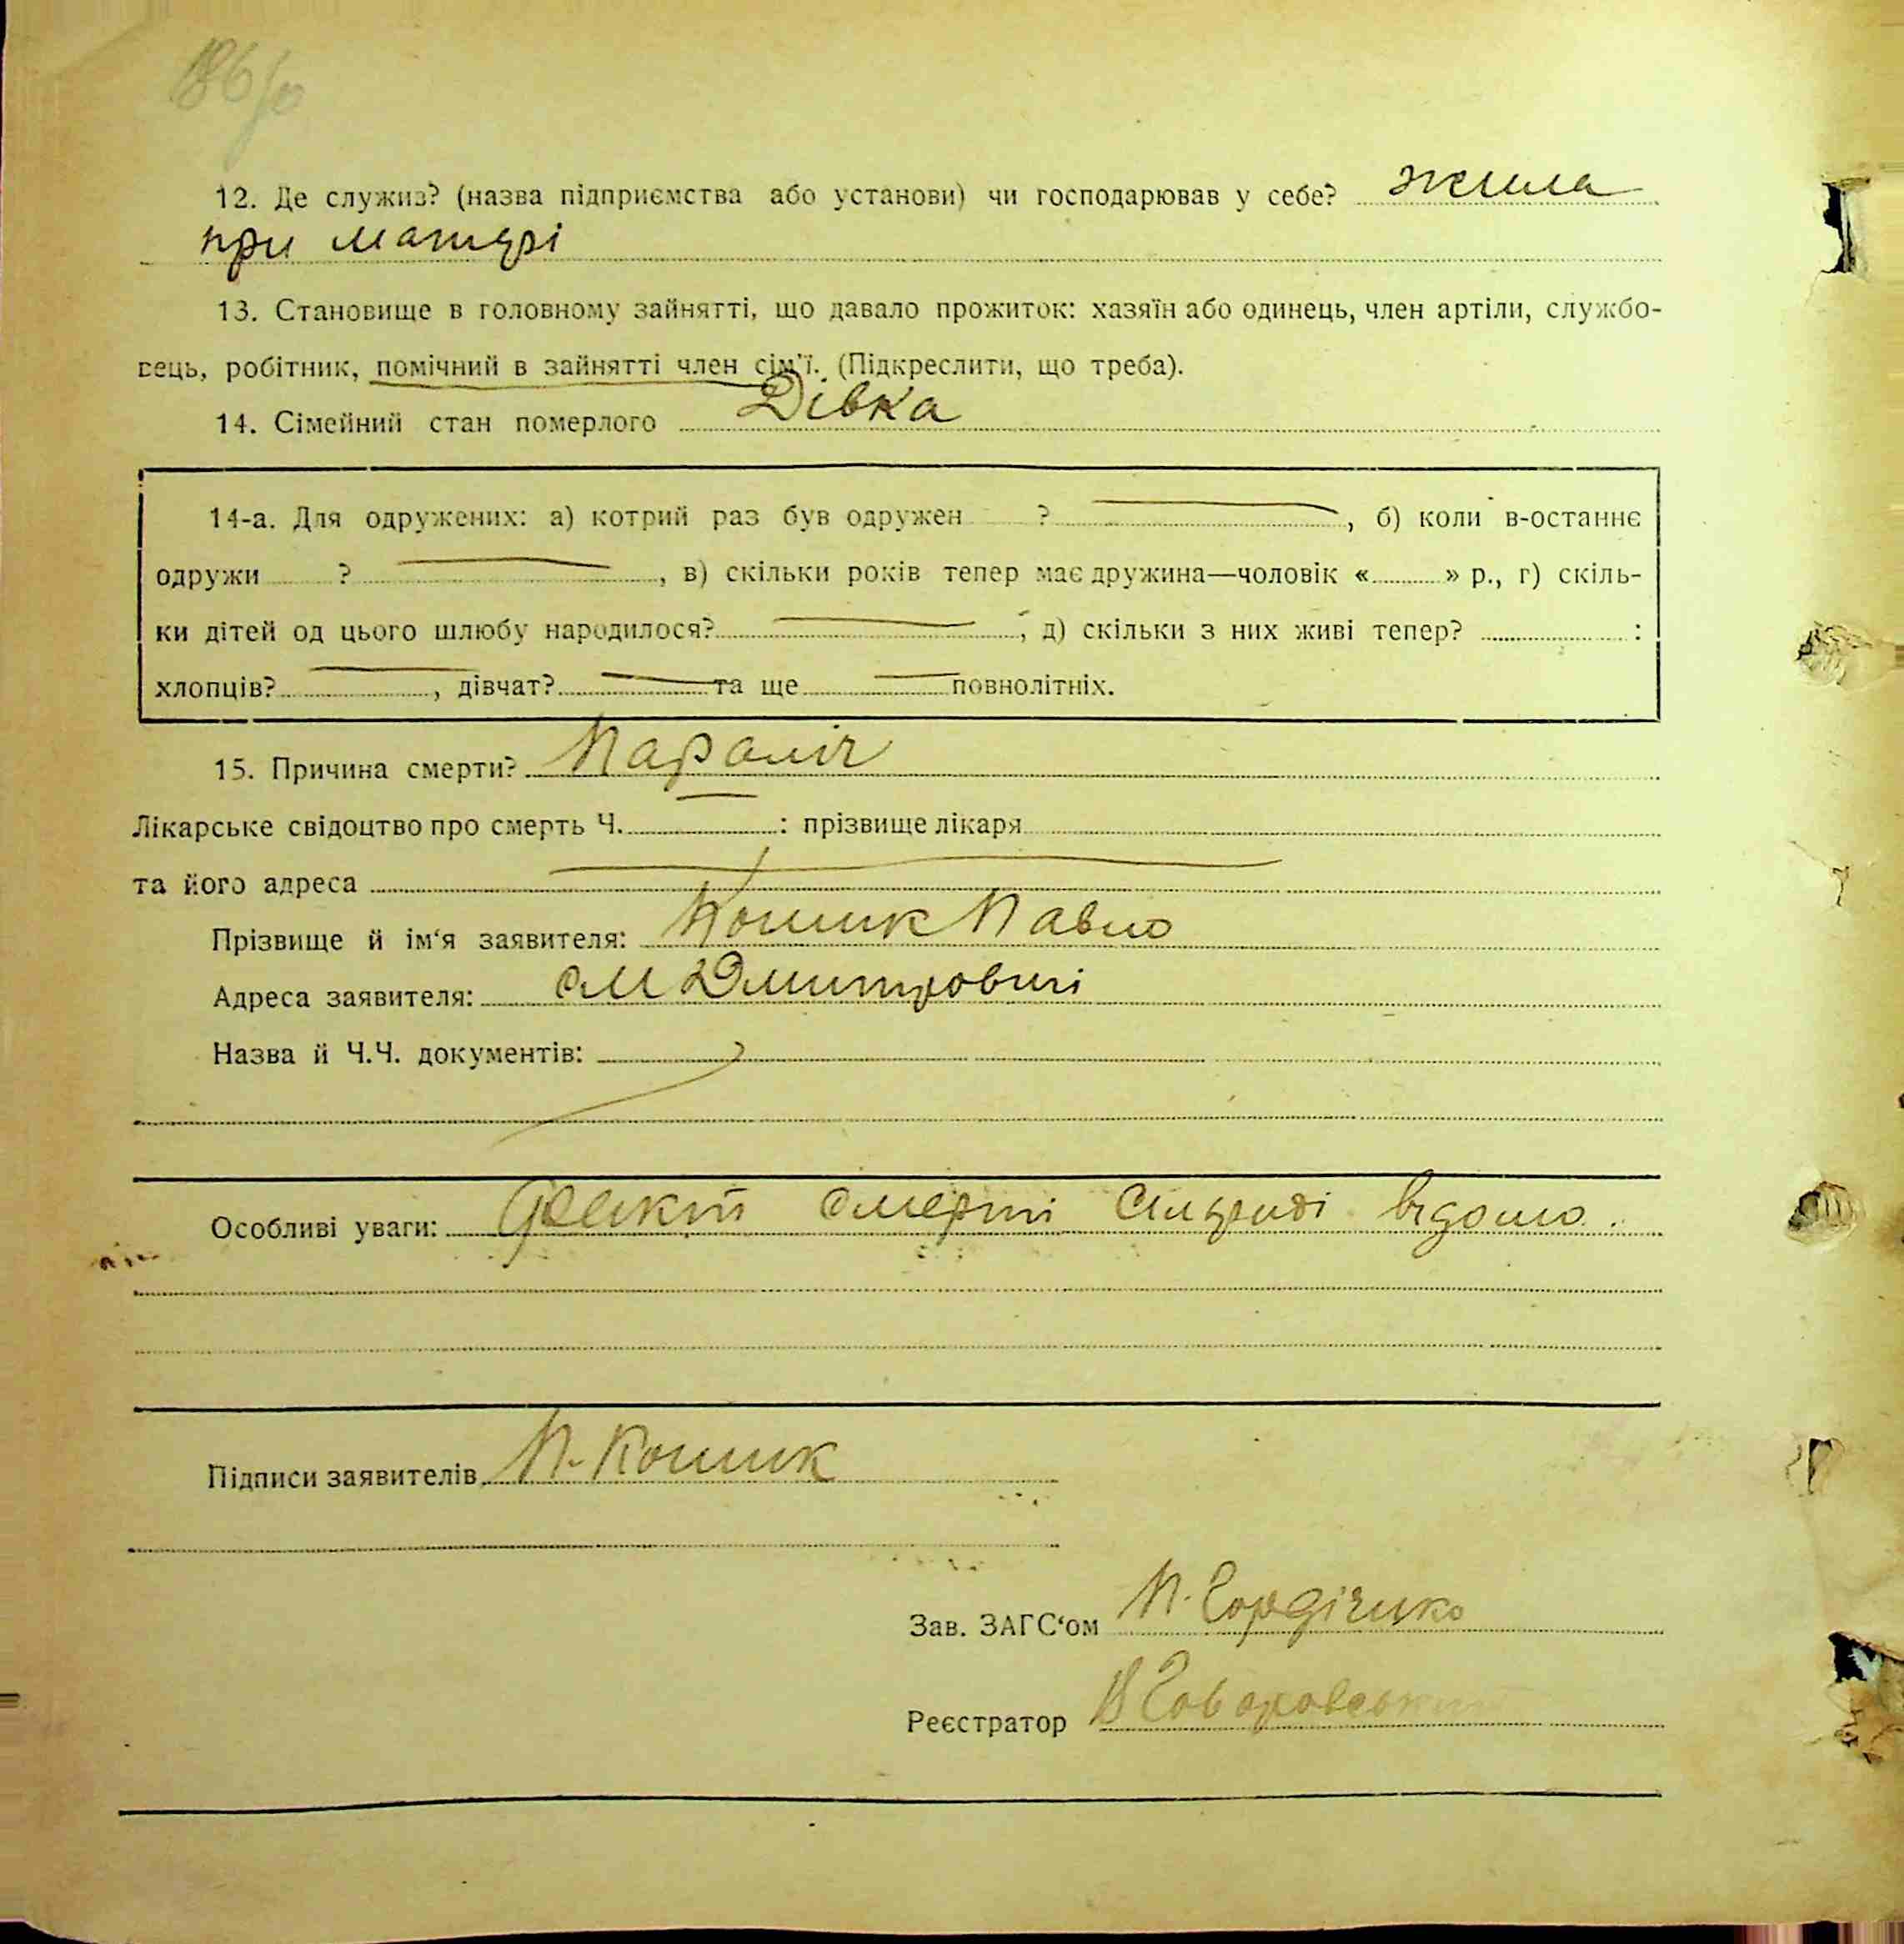 12. Де служив? (назва підприємства або установи) чи господарював у себе? жила
при матері
13. Становище в головному зайнятті, що давало прожиток: хазяїн або одинець, член артіли, службо-
вець, робітник, помічний в зайнятті член сім'ї. (Підкреслити, що треба).
14. Сімейний стан померлого Дівка
14-а. Для одружених: а) котрий раз був одружен ? , б) коли в-останнє
одружи ? , в) скільки років тепер має дружина—чоловік « » р., г) скіль-
ки дітей од цього шлюбу народилося? , д) скільки з них живі тепер? :
хлопців? , дівчат? та ще повнолітніх.
15. Причина смерти? Параліч
Лікарське свідоцтво про смерть Ч. : прізвище лікаря
та його адреса
Прізвище й ім'я заявителя: Кошик Павло
Адреса заявителя: см Дмитровичі
Назва й Ч.Ч. документів:
Особливі уваги: Факт смерті Сільраді відомо.
Підписи заявителів П. Кошик
Зав. ЗАГС'ом П. Гордієнко
Реєстратор В Говоровський